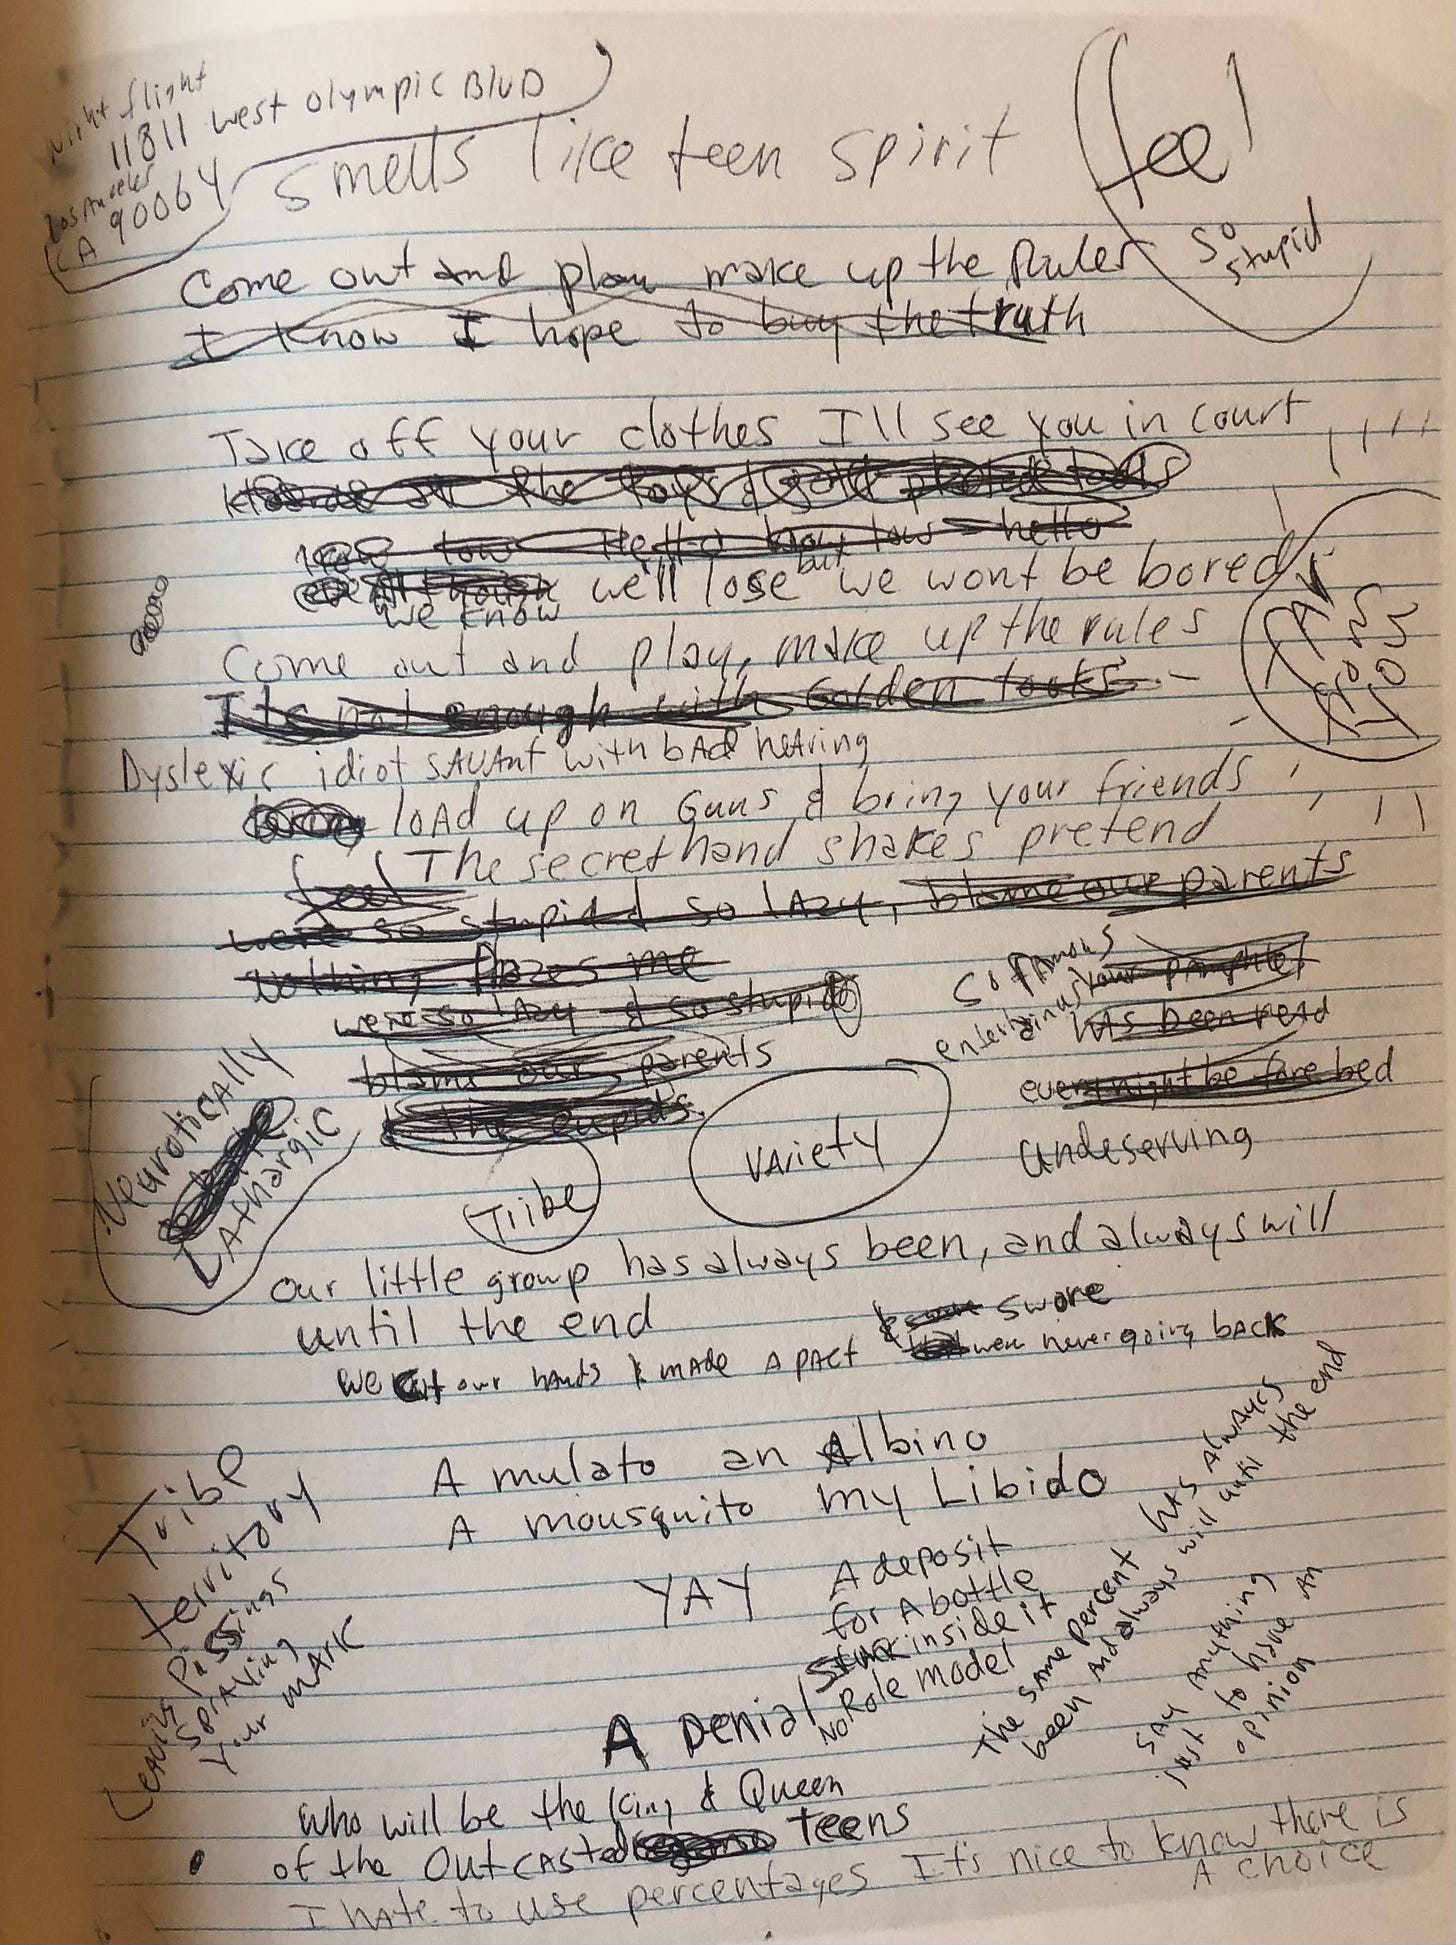 Night flight
11811 West Olympic BlvD
Los Angeles
CA 90064
smells like teen spirit
feel
so
stupid
Come out and play make up the Rules
I know I hope to buy the truth
Take off your clothes I'll see you in court
the toys & gold plated tools
low Hello how low hello
we know we'll lose but we wont be bored
Come out and play, make up the rules
Its not enough with Golden tools
Dyslexic idiot SAVAnt with bAd heAring
loAd up on Guns & bring your friends
The secret hand shakes pretend
feel
were so stupid & so lAzy, blame our parents
nothing fazes me
were so lAzy & so stupid
blame our parents
& the cupids
so fAmous
your pAmphlet
hAs been reAd
every night before bed
undeserving
NeuroticAlly
LAthArgic
Tribe
VArieTy
our little group has always been, and always will
until the end
we cut our hAnds & mADe A pAct & swore
were never going bAck
A mulato an Albino
A mousquito my Libido
YAY
A deposit
for A bottle
Stick inside it
No Role model
A Denial
Tribe
territory
LeAving Pissings
SprAying
your mArk
The sAme Percent hAs AlwAycs
been And always will until the end
SAy Anything
just to have An
opinion
who will be the King & Queen
of the OutcAsted teens
I hAte to use percentages It's nice to know there is
A choice